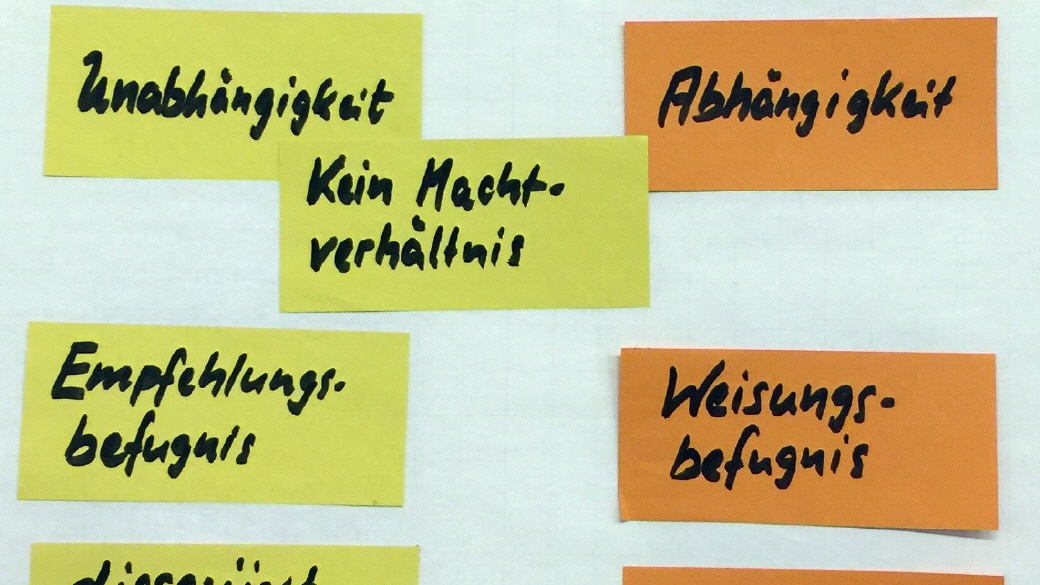 Unabhängigkeit
Abhängigkeit
Kein Macht-
verhältnis
Empfehlungs-
befugnis
Weisungs-
befugnis